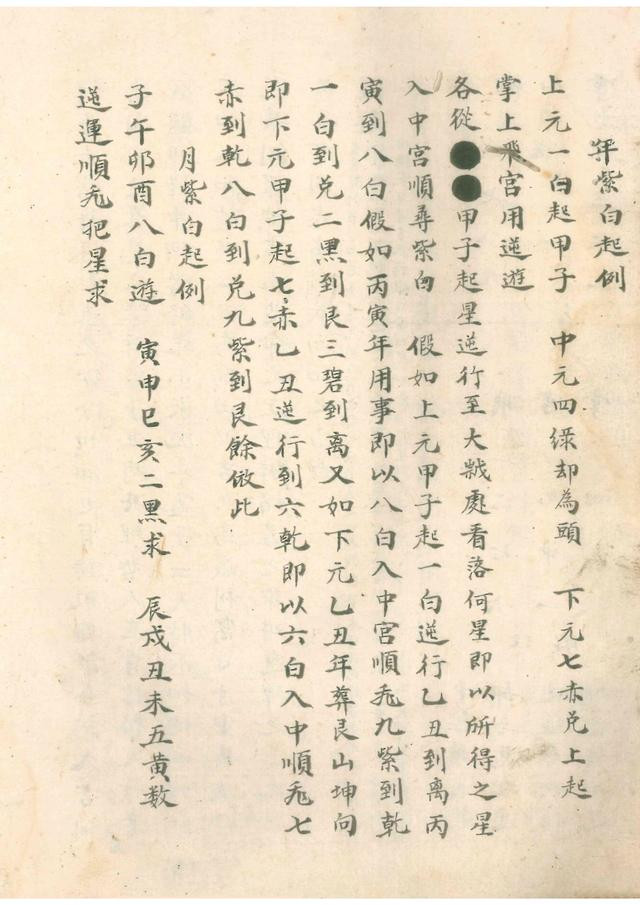 年紫白起例
上元一白起甲子　中元四绿却為頭　下元七赤兑上起
掌上飛宫用逆遊
各從●●甲子起星逆行至大歲處看落何星即以所得之星
入中宫順尋紫白　假如上元甲子起一白逆行乙丑到离丙
寅到八白假如丙寅年用事即以八白入中宫順飛九紫到乾
一白到兑二黑到艮三碧到离又如下元乙丑年葬艮山坤向
即下元甲子起七赤乙丑逆行到六乾即以六白入中順飛七
赤到乾八白到兑九紫到艮餘倣此
月紫白起例
子午卯酉八白遊　寅申巳亥二黑求　辰戌丑未五黄数
逆運順飛把星求